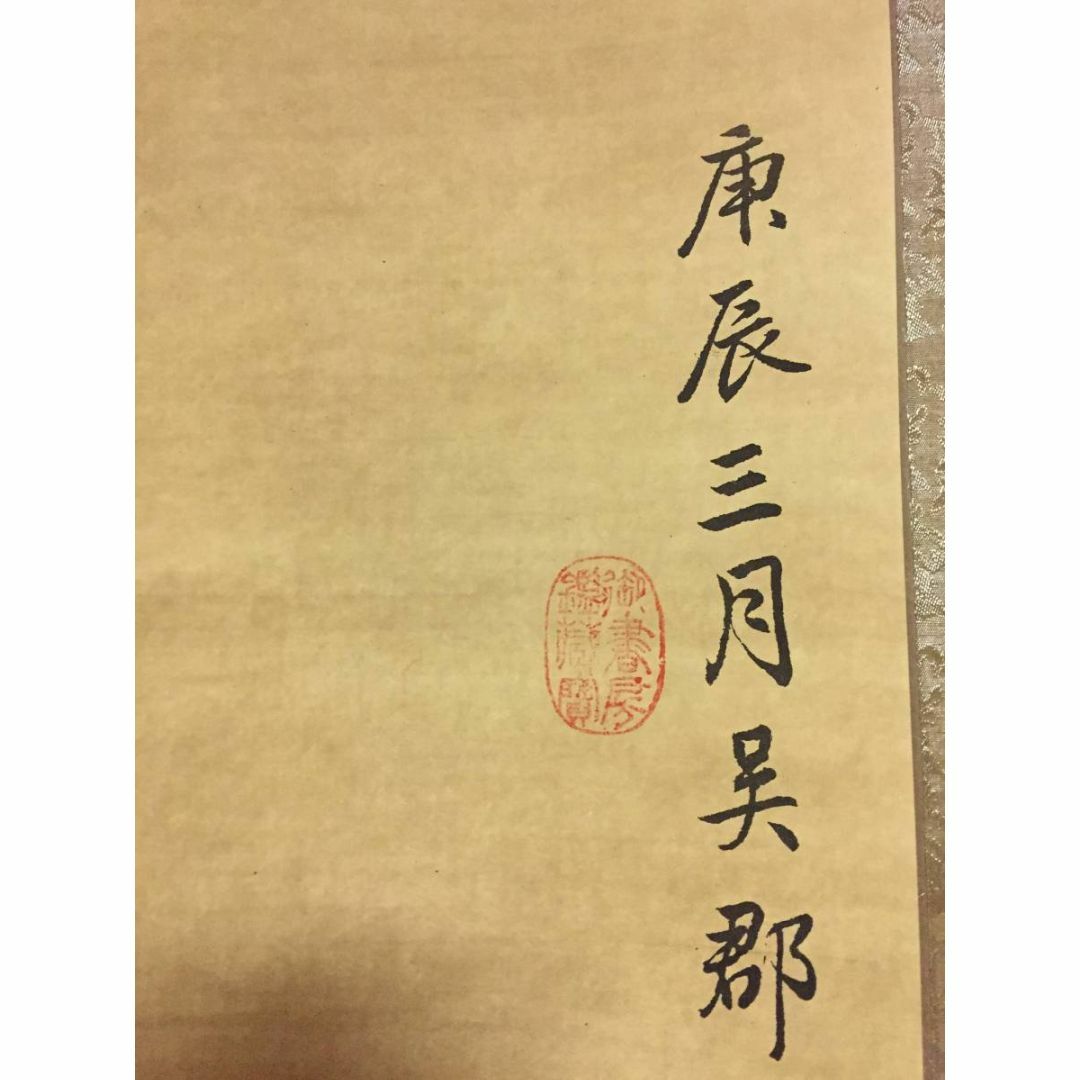 庚辰三月吴郡
御書房
鑑藏寶